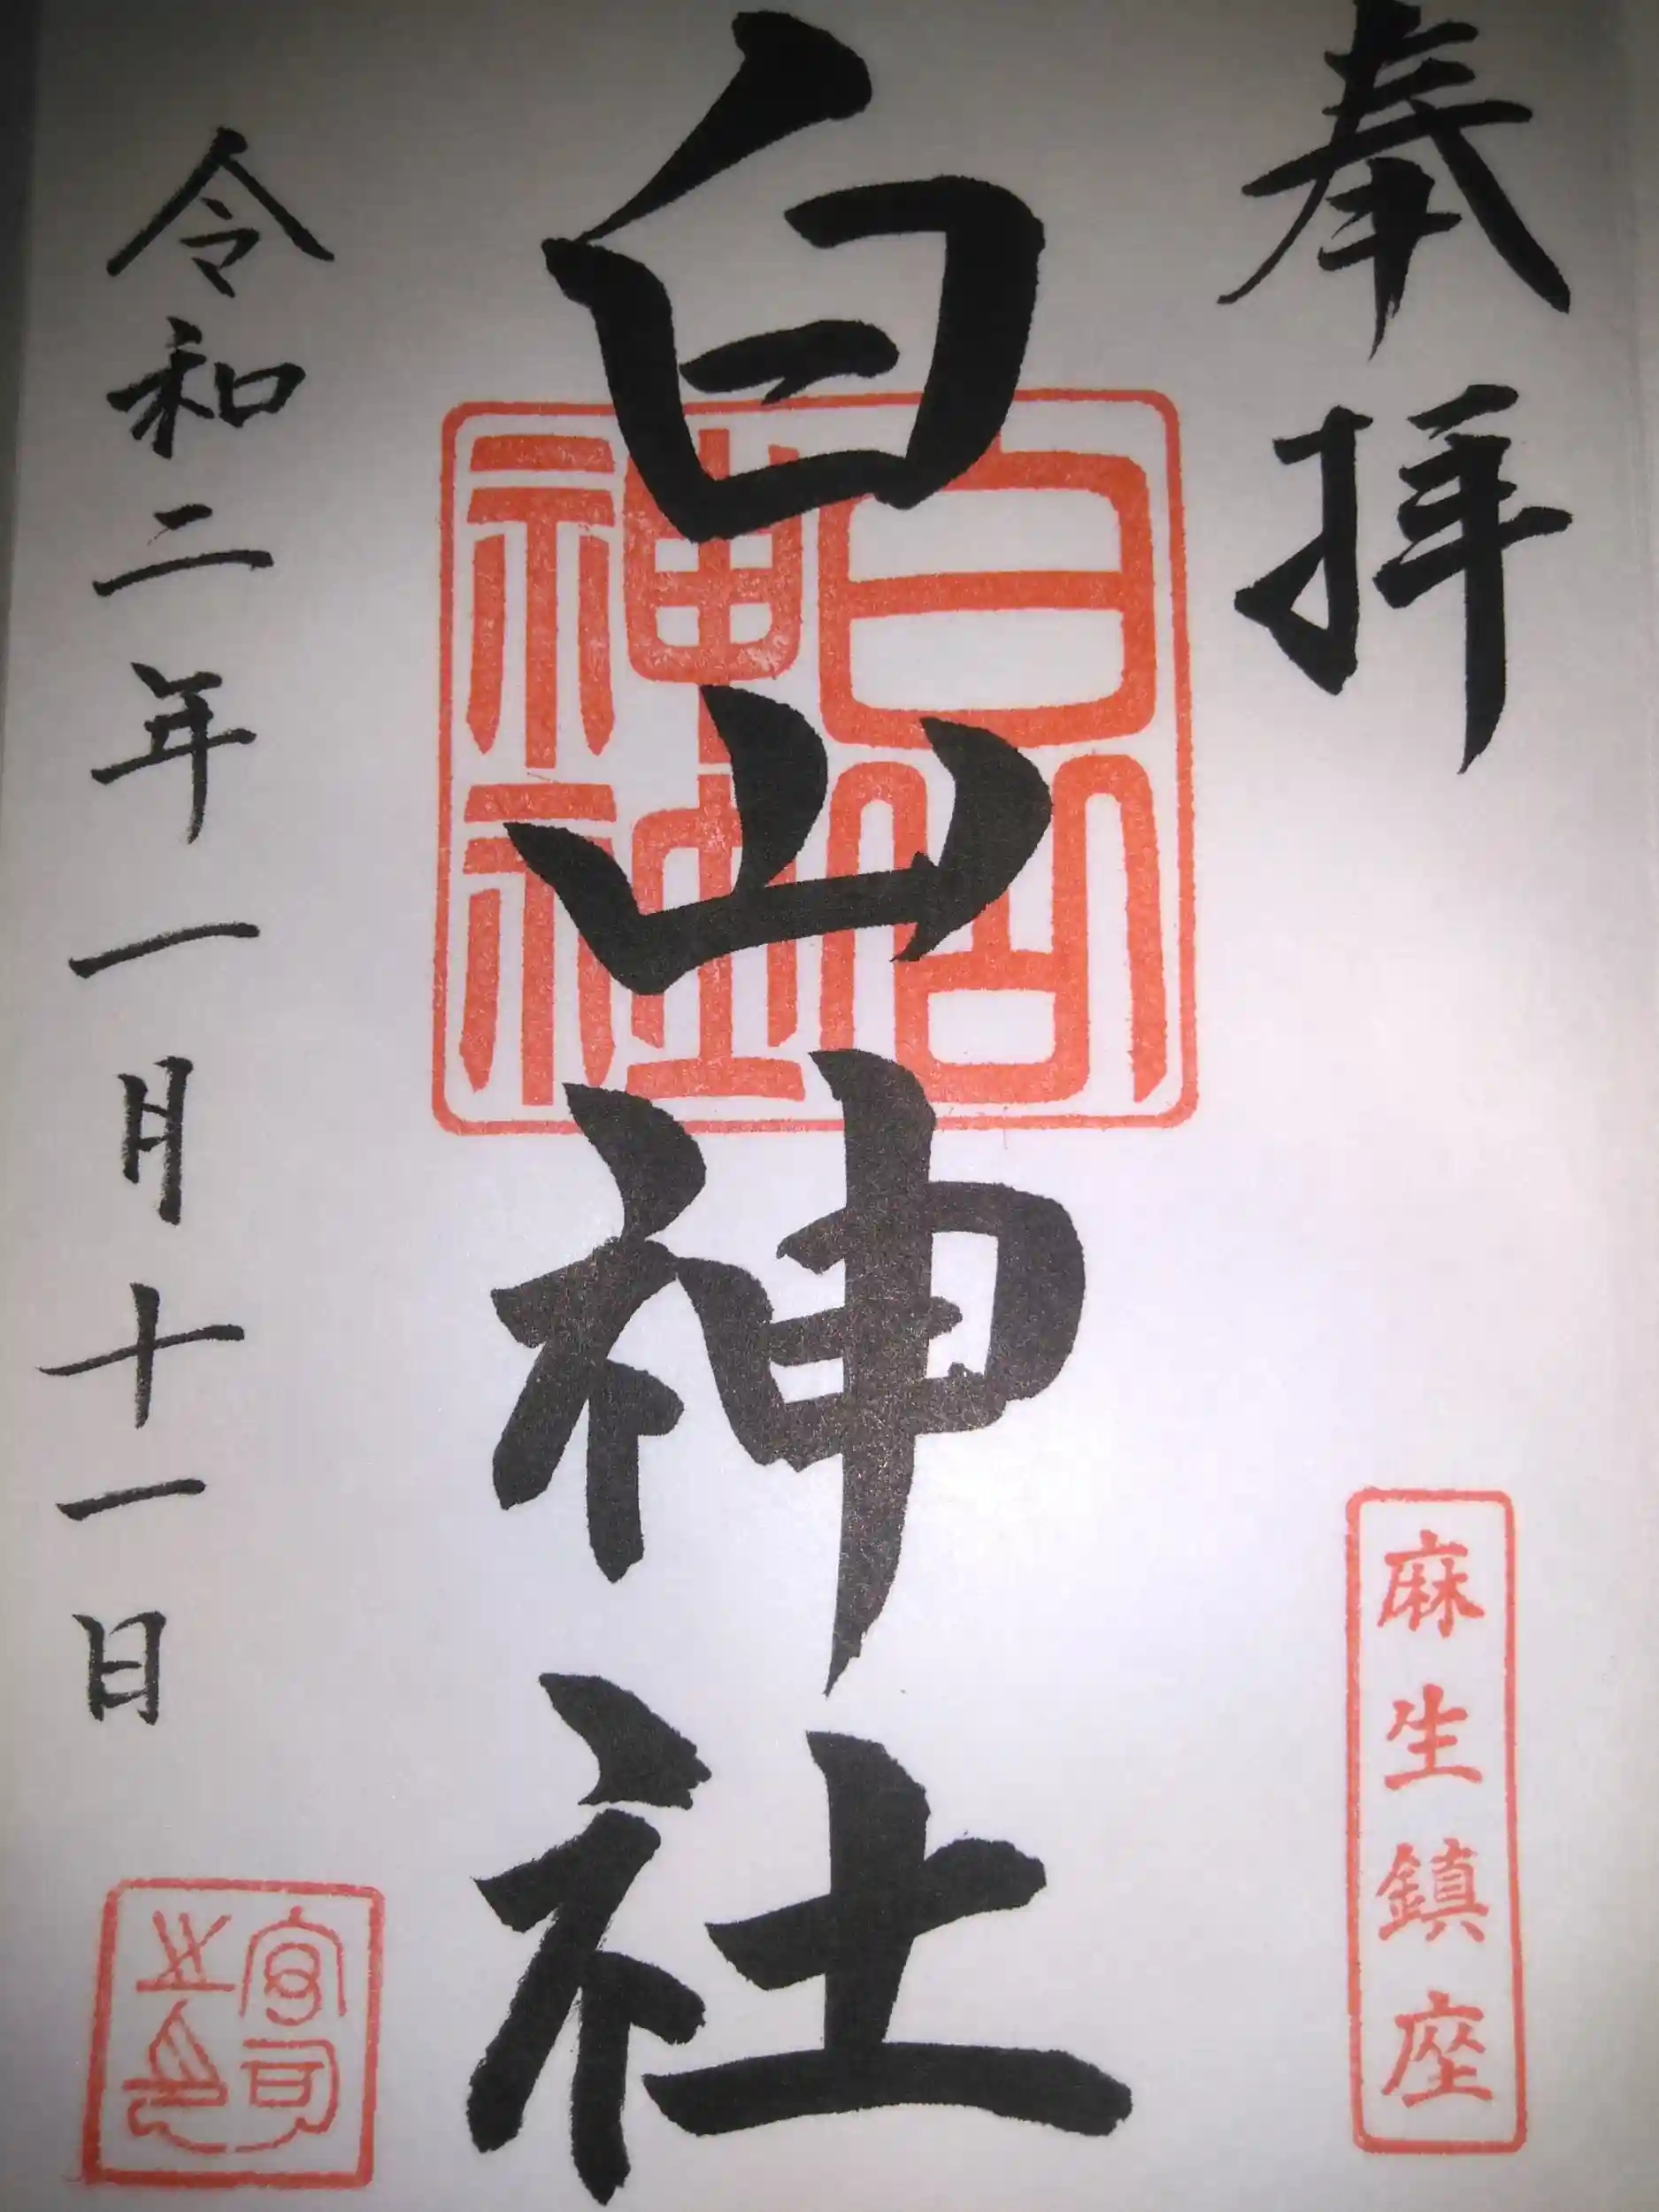 奉拝
麻生鎮座
白山神社
白山神社
令和二年一月十一日
宮司之印